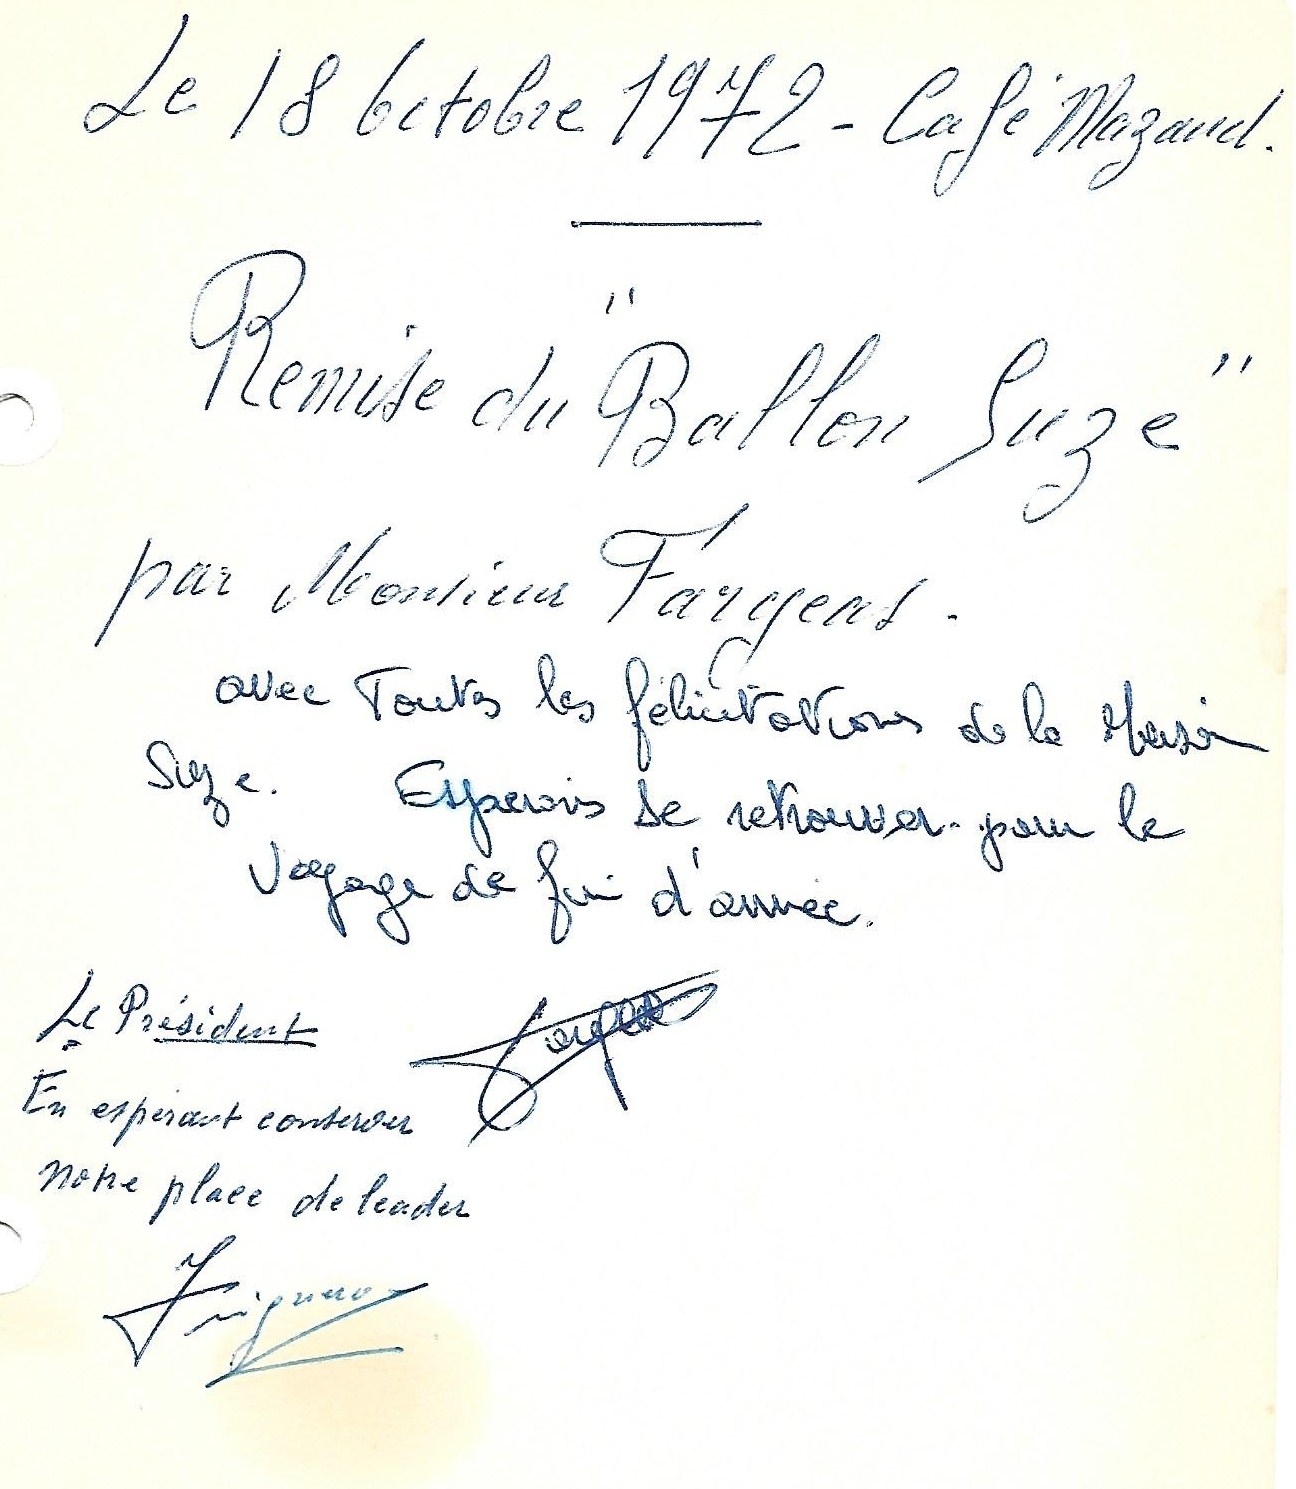 Le 18 Octobre 1972 - Café Mazaud.
Remise du "Ballon Suze"
par Monsieur Fargeas.
avec Toutes les félicitations de la Maison
Suze. Esperons se retrouver pour le
Voyage de fin d'année.
Le Président
En espérant conserver
notre place de leader